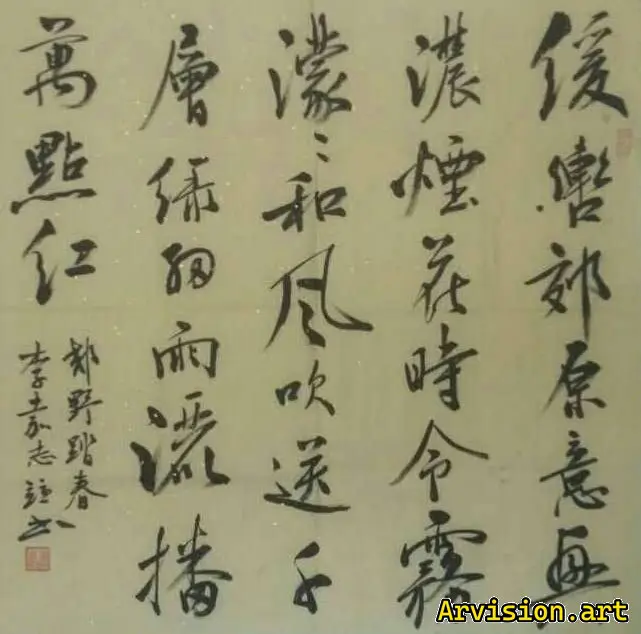 緩轡郊原意興
濃煙花時令霧
濛〻和風吹送千
層綠細雨灑播
萬點紅
郊野踏春
李嘉志书
Arvision.art